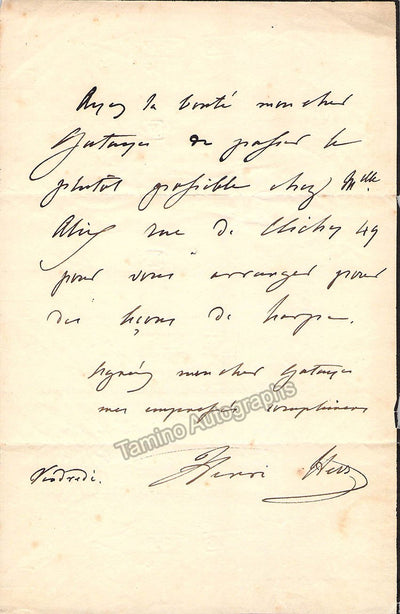 Ayez la bonté mon cher
Gatayes de passer le
plutot possible chez Mlle
rue de Clichy 49
pour vous arranger pour
des leçons de harpe.
Agréez mon cher Gatayes
mes empressés compliments
Vendredi. Henri Herz
Tamino Autographs